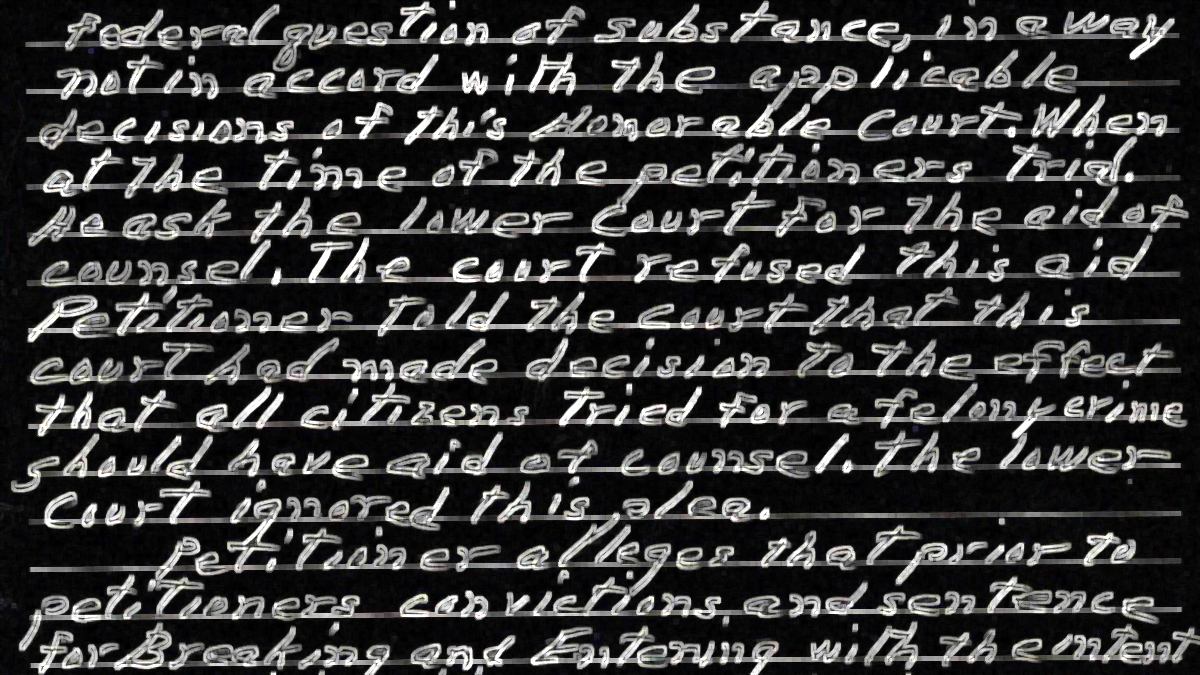 federal question of substance, in a way
not in accord with the applicable
decisions of this Honorable Court. When
at the time of the petitioners trial.
He ask the lower Court for the aid of
counsel. The court refused this aid
Petitioner told the court that this
court had made decision to the effect
that all citizens tried for a felony crime
should have aid of counsel. The lower
Court ignored this plea.
Petitioner alleges that prior to
petitioners convictions and sentence
for Breaking and Entering with the intent